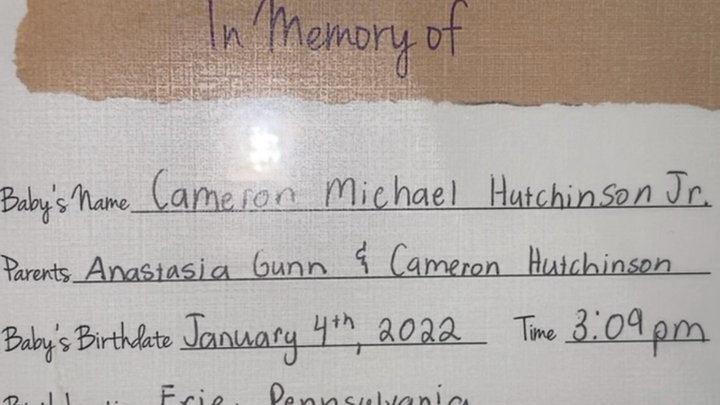 In Memory of
Baby's Name Cameron Michael Hutchinson Jr.
Parents Anastasia Gunn & Cameron Hutchinson
Baby's Birthdate January 4th, 2022 Time 3:09 pm
Erie, Pennsylvania